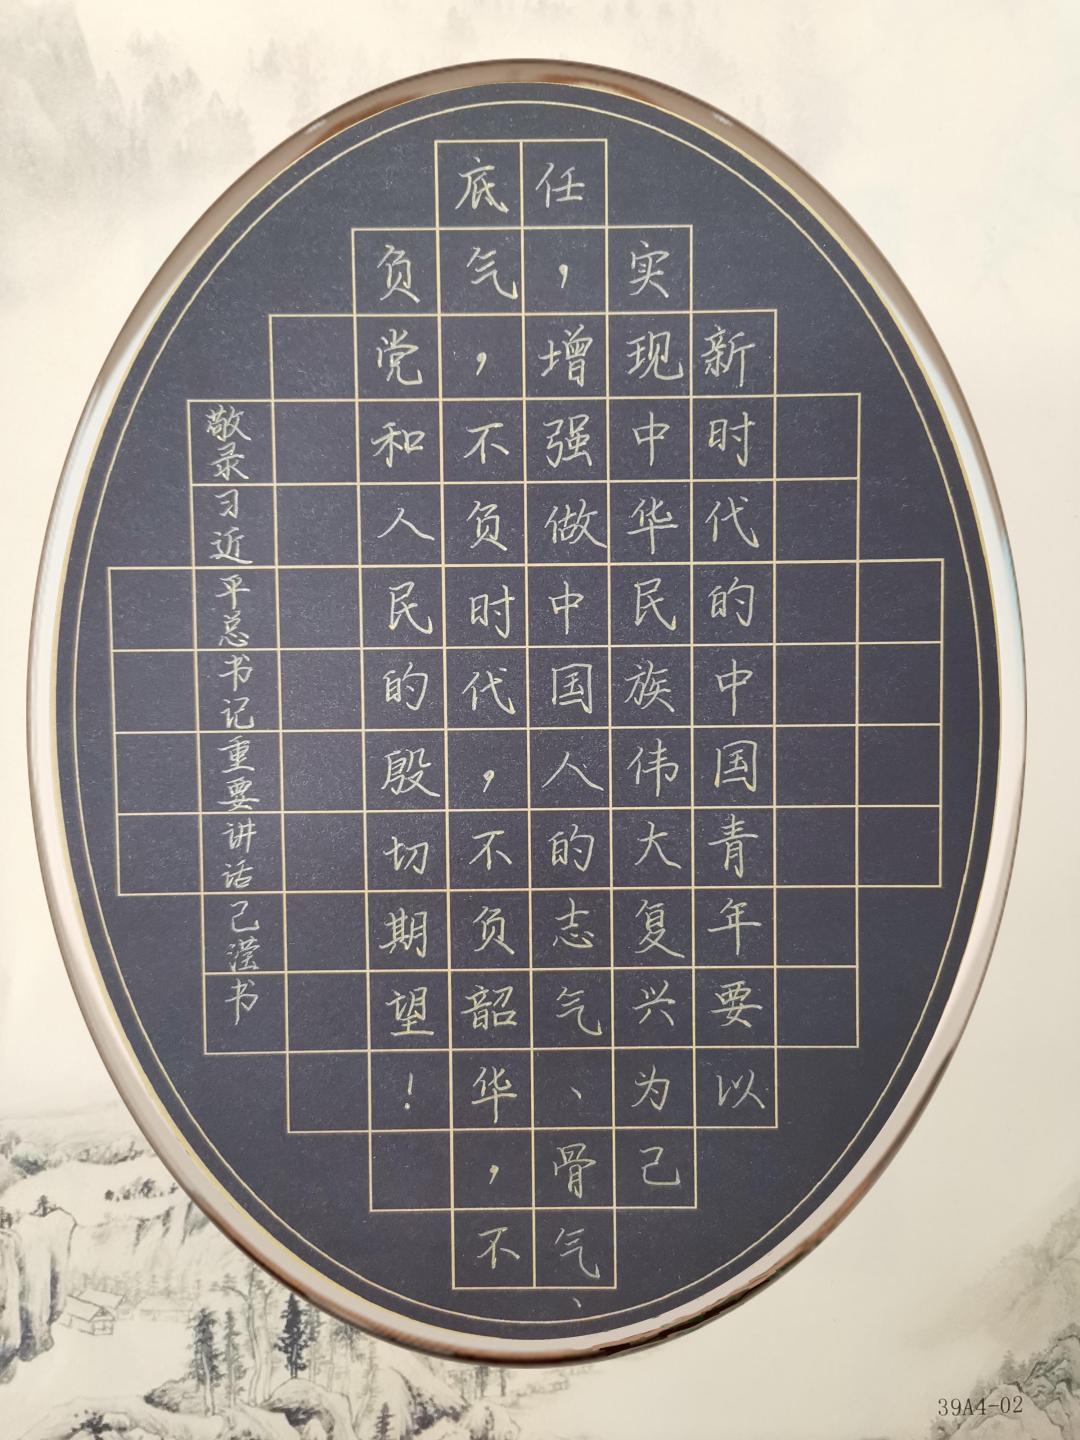 新时代的中国青年要以
实现中华民族伟大复兴为己
任，增强做中国人的志气、骨气、
底气，不负时代，不负韶华，不
负党和人民的殷切期望！
敬录习近平总书记重要讲话己滢书
39A4-02